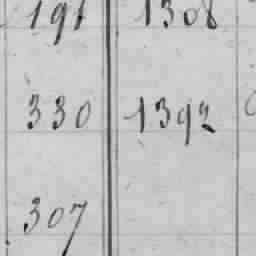 191 1308
330 1392
307